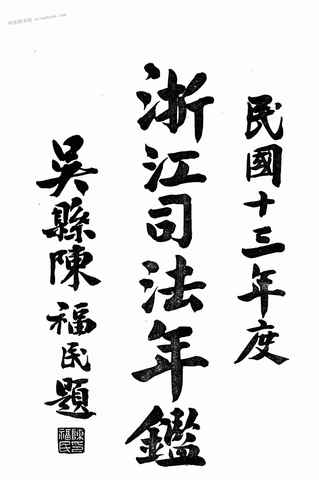 民國十三年度
浙江司法年鑑
吳縣陳福民題